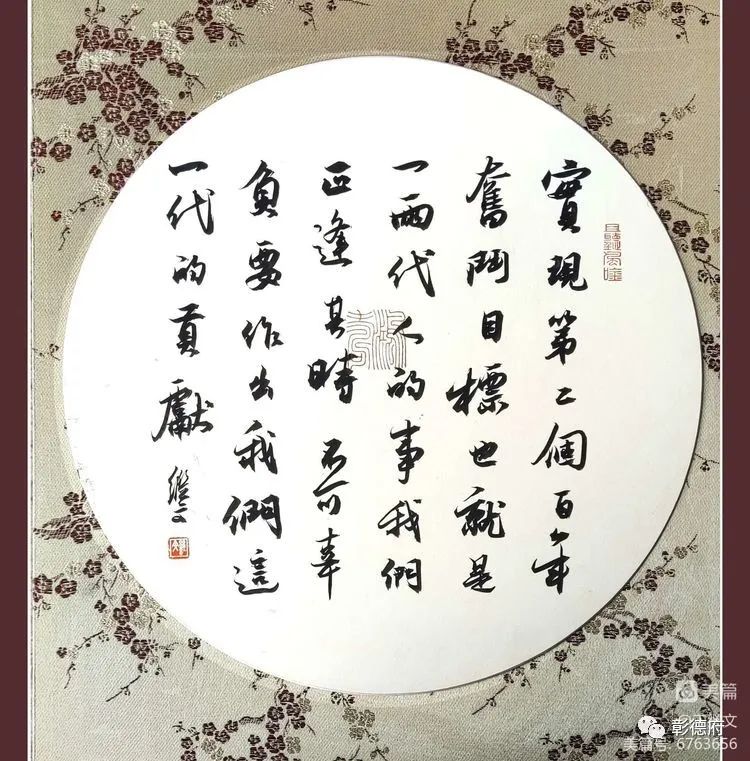 實現第二個百年
奮鬥目標也就是
一兩代人的事我們
正逢其時不可辜
負要作出我們這
一代的貢獻
继文
美篇
文
彰德府
美篇号: 6763656